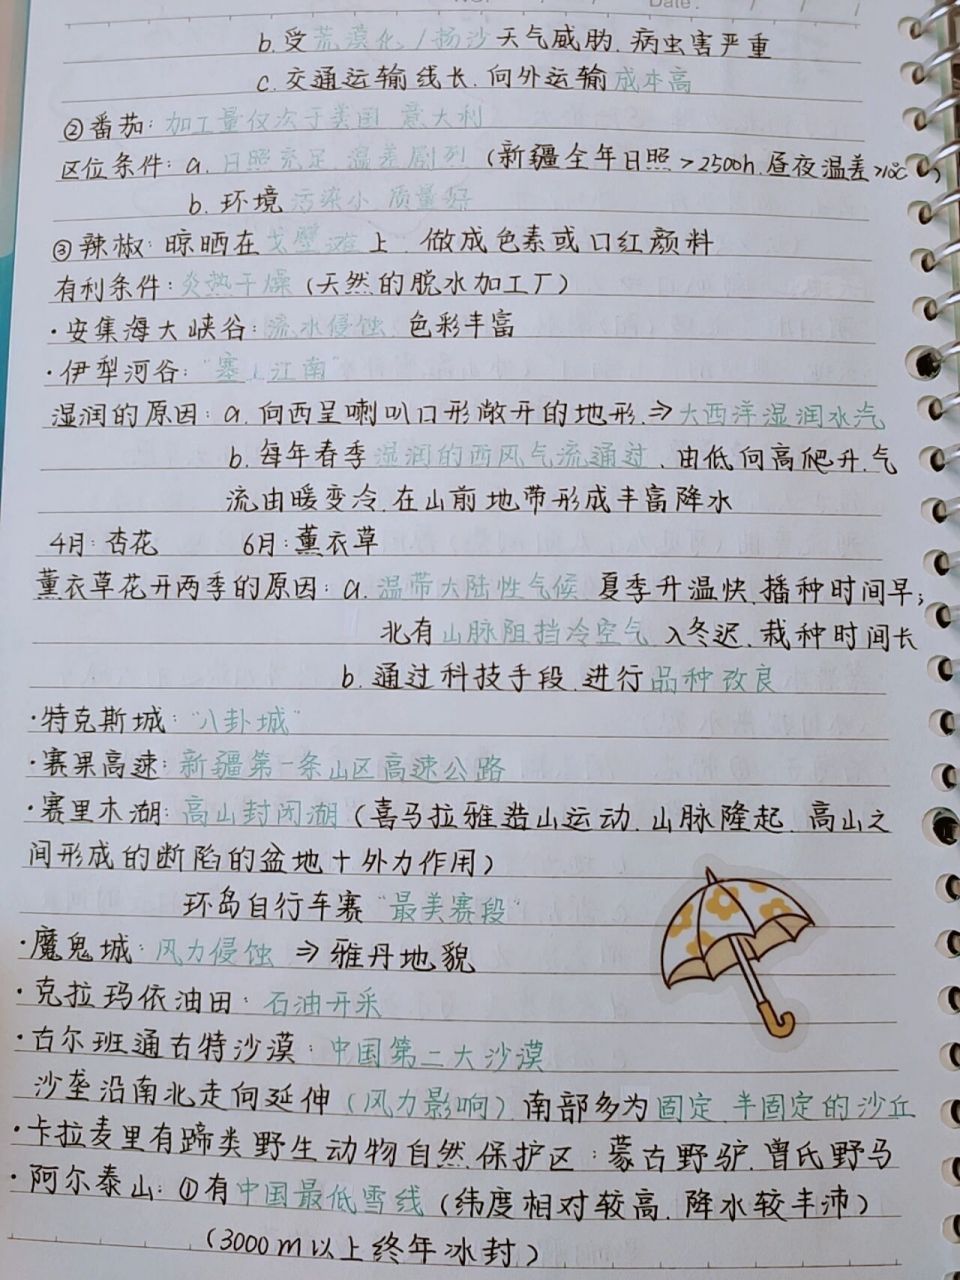 Date:
b.受荒漠化/扬沙天气威胁.病虫害严重
c.交通运输线长.向外运输成本高
②番茄:加工量仅次于美国 意大利
区位条件:a.日照充足.温差剧烈(新疆全年日照>2500h.昼夜温差>10℃)
b.环境污染小.质量好
③辣椒:晾晒在戈壁滩上.做成色素或口红颜料
有利条件:炎热干燥(天然的脱水加工厂)
·安集海大峡谷:流水侵蚀.色彩丰富
·伊犁河谷:"塞上江南"
湿润的原因:a.向西呈喇叭口形敞开的地形.⇒大西洋湿润水汽
b.每年春季湿润的西风气流通过.由低向高爬升.气
流由暖变冷.在山前地带形成丰富降水
4月:杏花 6月:薰衣草
薰衣草花开两季的原因:a.温带大陆性气候 夏季升温快.播种时间早;
北有山脉阻挡冷空气.入冬迟.栽种时间长
b.通过科技手段.进行品种改良
·特克斯城:"八卦城"
·赛果高速:新疆第一条山区高速公路
·赛里木湖:高山封闭湖(喜马拉雅造山运动.山脉隆起.高山之
间形成的断陷的盆地+外力作用)
环岛自行车赛"最美赛段"
·魔鬼城:风力侵蚀⇒雅丹地貌
·克拉玛依油田:石油开采
·古尔班通古特沙漠:中国第二大沙漠
沙垄沿南北走向延伸(风力影响)南部多为固定.半固定的沙丘
·卡拉麦里有蹄类野生动物自然保护区:蒙古野驴.普氏野马
·阿尔泰山:①有中国最低雪线(纬度相对较高.降水较丰沛)
(3000m以上终年冰封)